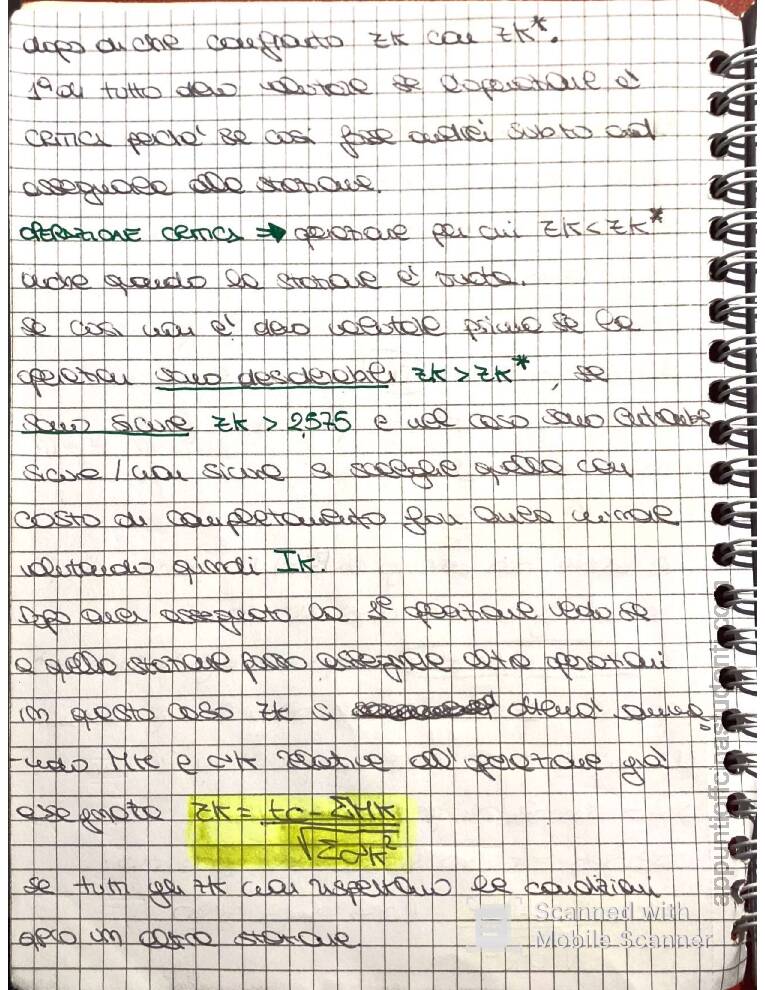 dopo di che confronto ZK con ZK*.
1ª di tutto devo valutare se l'operazione è
critica perché se così fosse andrei subito ad
assegnarla alla stazione.
OPERAZIONE CRITICA ⇒ operazione per cui ZK < ZK*
anche quando la stazione è vuota.
se così non è devo valutare prima se le
operazioni sono desiderabili ZK > ZK*, se
sono sicure ZK > 2,575 e nel caso sono entrambe
sicure / non sicure si sceglie quella con
costo di completamento fuori linea minore
valutando quindi IK.
Dopo aver assegnato la 1ª operazione vedo se
a quella stazione posso assegnare altre operazioni
in questo caso ZK si ottiene somma
-ndo MK e σK relative all'operazione già
assegnata ZK = tc - ΣMK / √ΣσK²
se tutti gli ZK non rispettano le condizioni
apro un'altra stazione
appuntiofficinastudenti.com
Scanned with
Mobile Scanner